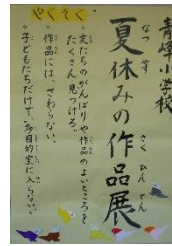 青峰小学校
夏休みの作品展
なつやす
さくひんてん
やくそく
。友だちのがんばりや作品のよいところを
たくさん見つける。
。作品には、さわらない。
。子どもたちだけで、多目的室に入らない。